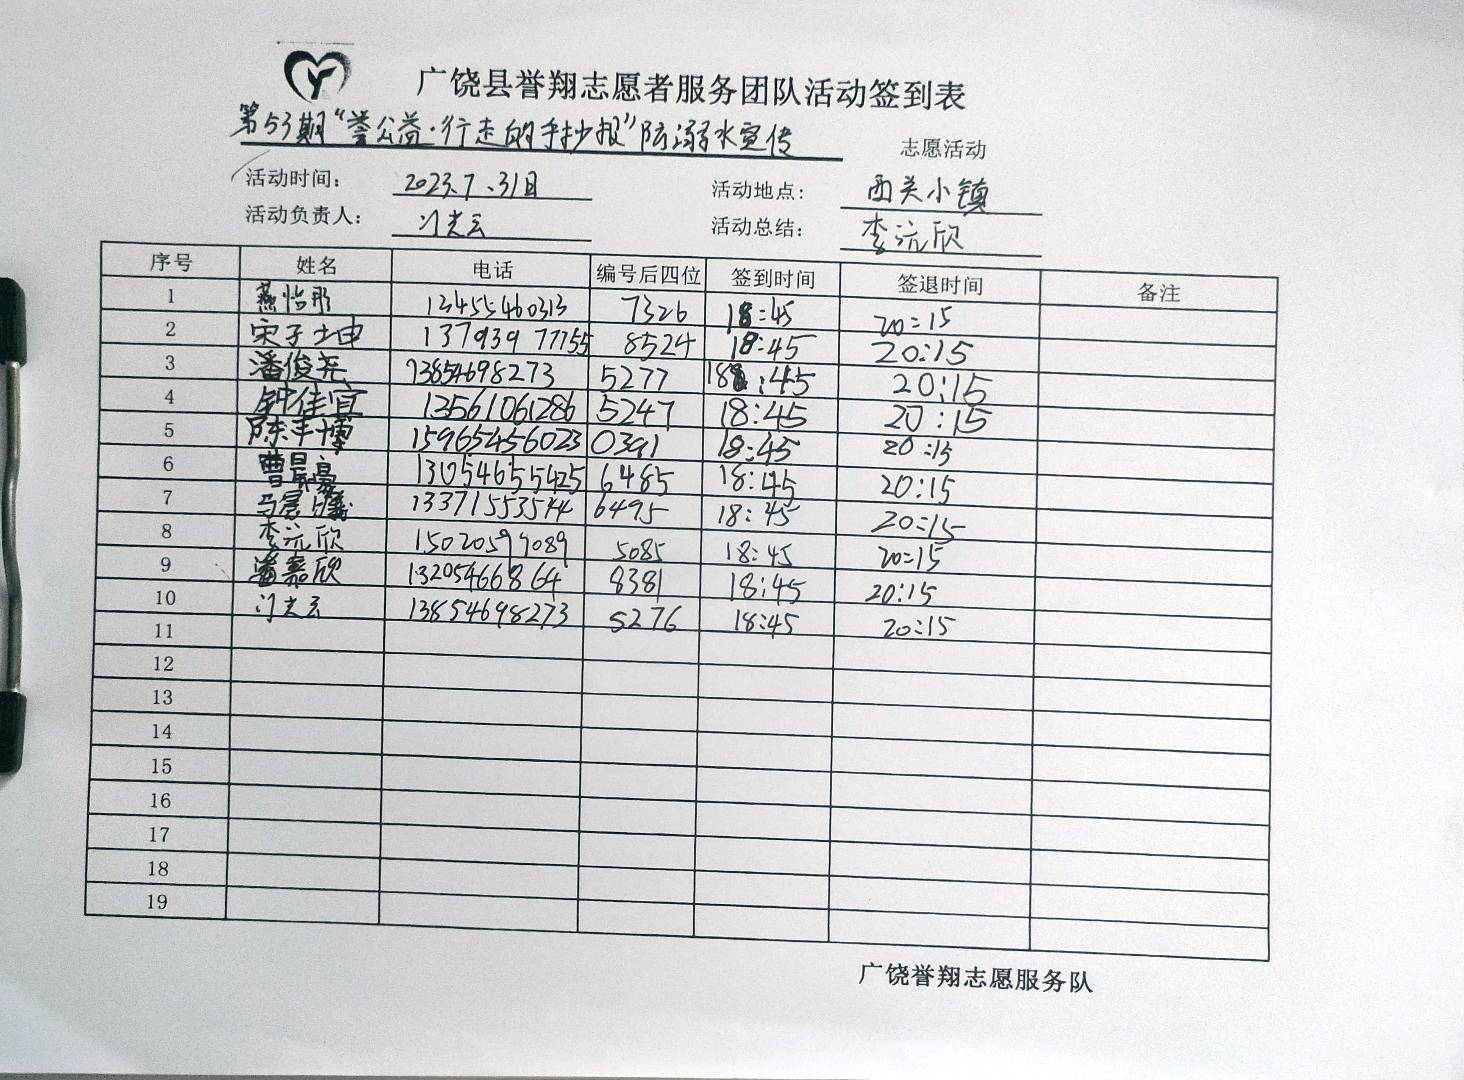 广饶县誉翔志愿者服务团队活动签到表
第53期“誉公益·行走的手抄报”防溺水宣传 志愿活动
活动时间： 2023.7.31日 活动地点： 西关小镇
活动负责人： 门光云 活动总结： 李沅欣
序号 姓名 电话 编号后四位 签到时间 签退时间 备注
1 燕怡彤 13455460313 7326 18:45 20:15
2 宋子坤 13793977755 8524 18:45 20:15
3 潘俊尧 13854698273 5277 18:45 20:15
4 钟佳宜 13561061286 5247 18:45 20:15
5 陈丰博 15965456023 0391 18:45 20:15
6 曹昊豪 13054655425 6485 18:45 20:15
7 马晨曦 13371553544 6495 18:45 20:15
8 李沅欣 15020599089 5085 18:45 20:15
9 潘嘉欣 13205466864 8381 18:45 20:15
10 门光云 13854698273 5276 18:45 20:15
11
12
13
14
15
16
17
18
19
广饶誉翔志愿服务队